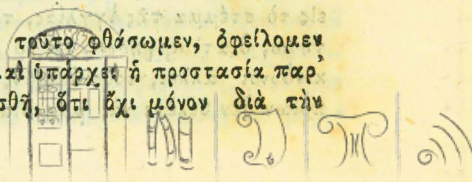 τοῦτο φθάσωμεν, ὀφείλομεν
ὑπάρχει ἡ προστασία παρ'
ὅτι ὄχι μόνον διὰ τὴν